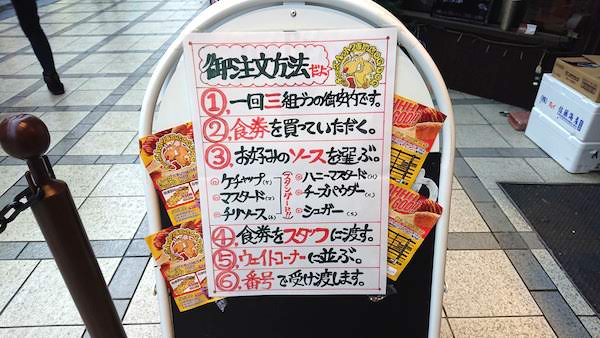 御注文方法だよ
①.一回三組づつの御案内です。
②.食券を買っていただく。
③.お好みのソースを選ぶ。
ケチャップ
マスタード
チリソース
ハニーマスタード
チーズパウダー
シュガー
④.食券をスタッフに渡す。
⑤.ウェイトコーナーに並ぶ。
⑥.番号で受け渡します。